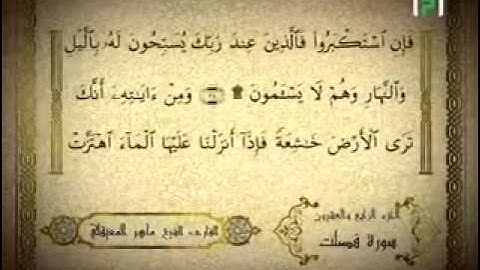 فَإِنِ ٱسۡتَكۡبَرُواْ فَٱلَّذِينَ عِندَ رَبِّكَ يُسَبِّحُونَ لَهُۥ بِٱلَّيۡلِ
وَٱلنَّهَارِ وَهُمۡ لَا يَسۡـَٔمُونَ ۩ ٣٨ وَمِنۡ ءَايَٰتِهِۦٓ أَنَّكَ
تَرَى ٱلۡأَرۡضَ خَٰشِعَةٗ فَإِذَآ أَنزَلۡنَا عَلَيۡهَا ٱلۡمَآءَ ٱهۡتَزَّتۡ
الجزء الرابع والعشرون
سورة فصلت
القارئ الشيخ ماهر المعيقلي